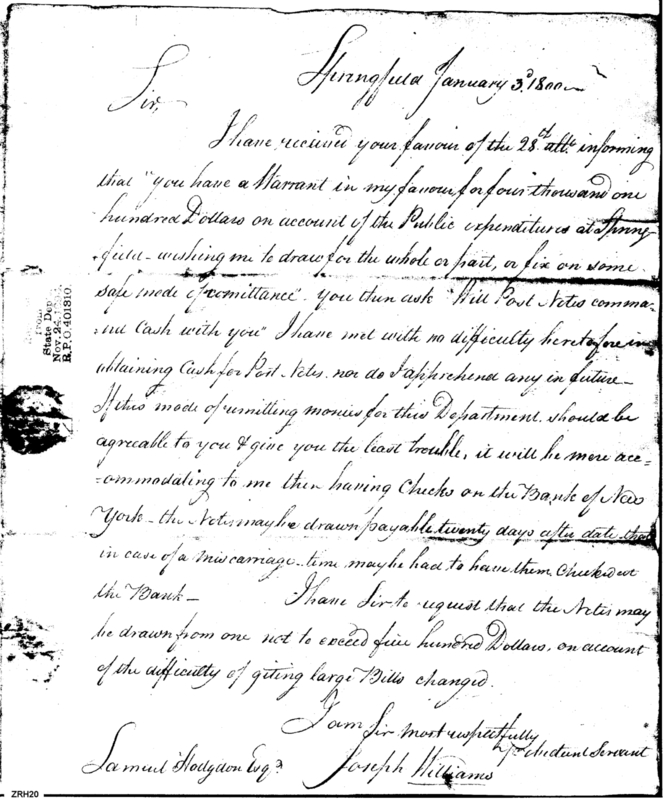 Springfield January 3d. 1800
Sir,
I have received your favour of the 28th. ulto. informing
that "you have a Warrant in my favour for four thousand one
hundred Dollars on account of the Public expenditures at Spring-
-field - wishing me to draw for the whole or part, or fix on some
safe mode of remittance" - you then ask "Will Post Notes comma-
-nd Cash with you" I have met with no difficulty heretofore in
obtaining Cash for Post Notes. nor do I apprehend any in future -
If this mode of remitting monies for this Department. should be
agreeable to you & give you the least trouble, it will be more acc=
=ommodating to me then having Checks on the Bank of New
York - the Notes may be drawn payable twenty days after date that
in case of a miscarriage - time may be had to have them Checked at
the Bank - I have Sir to request that the Notes may
be drawn from one not to exceed five hundred Dollars, on account
of the difficulty of giting large Bills changed.
I am Sir most respectfully
Yr. obedient Servant
Samuel Hodgdon Esqr. Joseph Williams
From
State Dep
Nov. 24,
R.P.O. 401310.
ZRH20